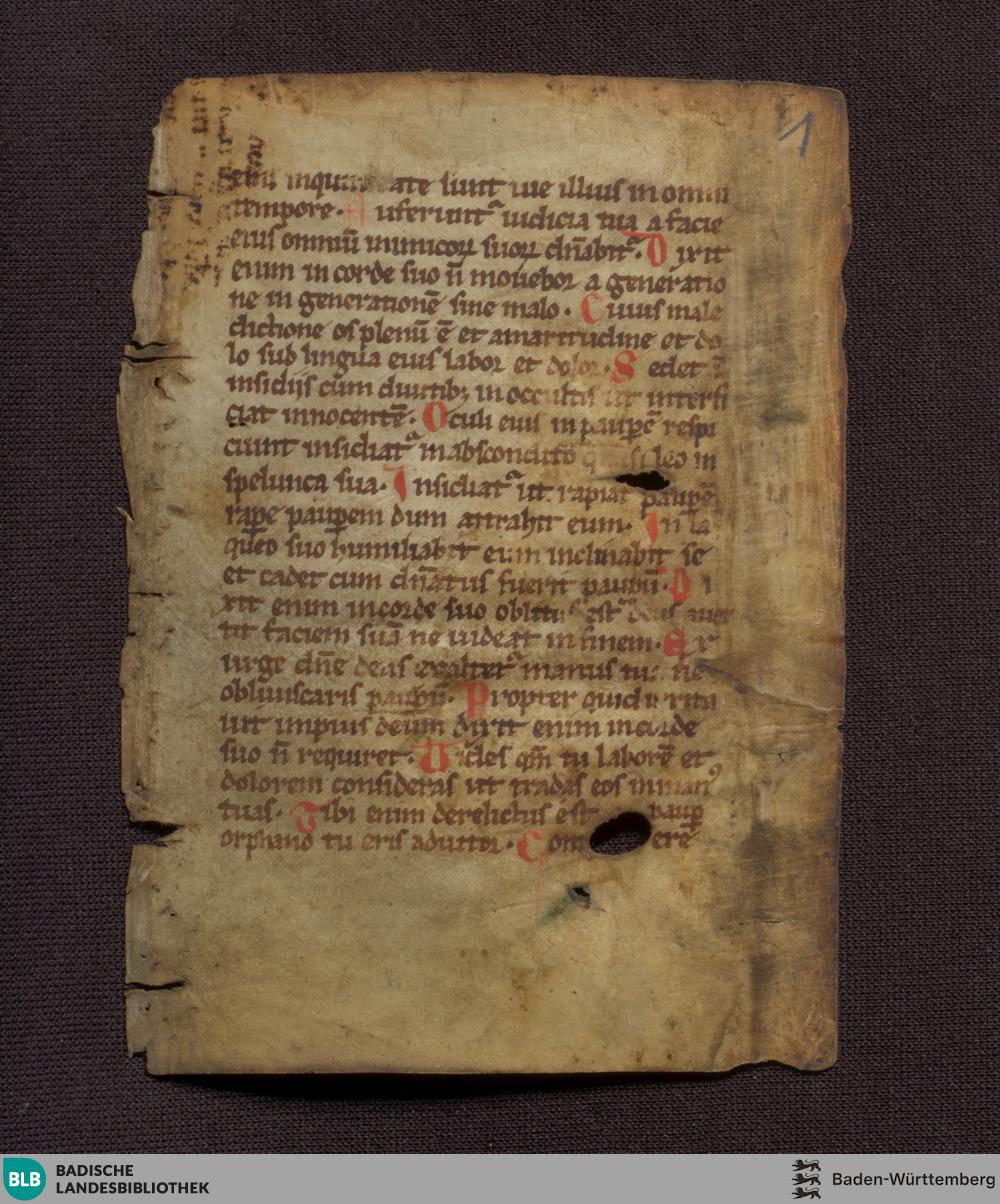 1
eius inquinate sunt uie illius in omni
tempore. Auferunt᷑ iudicia tua a facie
eius omniū inimicoꝝ suoꝝ dn̄abit᷑. Dixit
enim in corde suo n̄ mouebor a generatio
ne in generationē sine malo. Cuius male
dictione os plenū ē et amaritudine et do
lo sub lingua eius labor et dolor. Sedet ī
insidijs cum diuitibꝫ in occultis ut interfi
ciat innocentē. Oculi eius in pauꝑē respi
ciunt insidiat᷑ in abscondito quasi leo in
spelunca sua. Insidiat᷑ ut rapiat pauꝑē
rape pauꝑem dum attrahit eum. In la
queo suo humiliabit eum inclinabit se
et cadet cum dn̄atus fuerit pauꝑū. Di
xit enim in corde suo oblitus est deus auer
tit faciem suā ne uideat in finem. Ex
urge dn̄e deus exaltet᷑ manus tua ne
obliuiscaris pauꝑū. Propter quid irrita
uit impius deum dixit enim in corde
suo n̄ requiret. Uides qm̄ tu laborē et
dolorem consideras ut tradas eos in manꝰ
tuas. Tibi enim derelictus est pauꝑ
orphano tu eris adiutor. Con erē
BLB
BADISCHE
LANDESBIBLIOTHEK
Baden-Württemberg